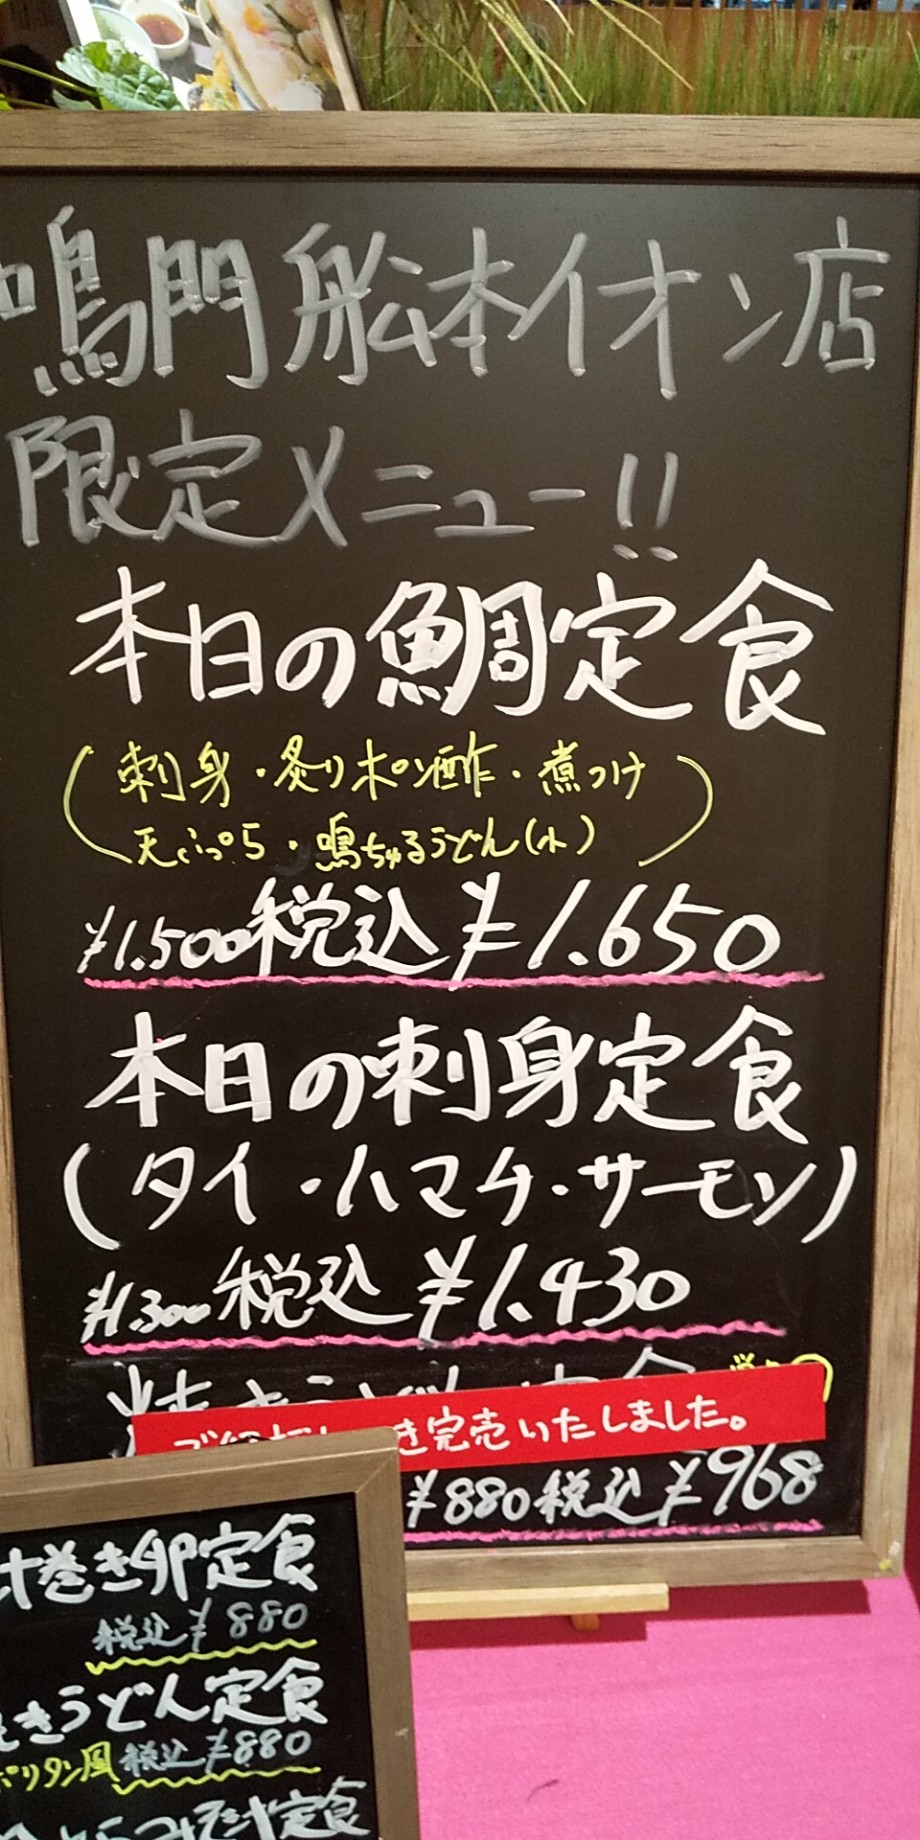 鳴門船本イオン店
限定メニュー!!
本日の鯛定食
(刺身・炙りポン酢・煮つけ
天ぷら・鳴ちゅるうどん(小))
¥1.500税込¥1.650
本日の刺身定食
(タイ・ハマチ・サーモン)
¥1.300税込¥1.430
き完売いたしました。
¥880税込¥968
巻き卵定食
税込¥880
きうどん定食
ポリタン風 税込¥880
定食